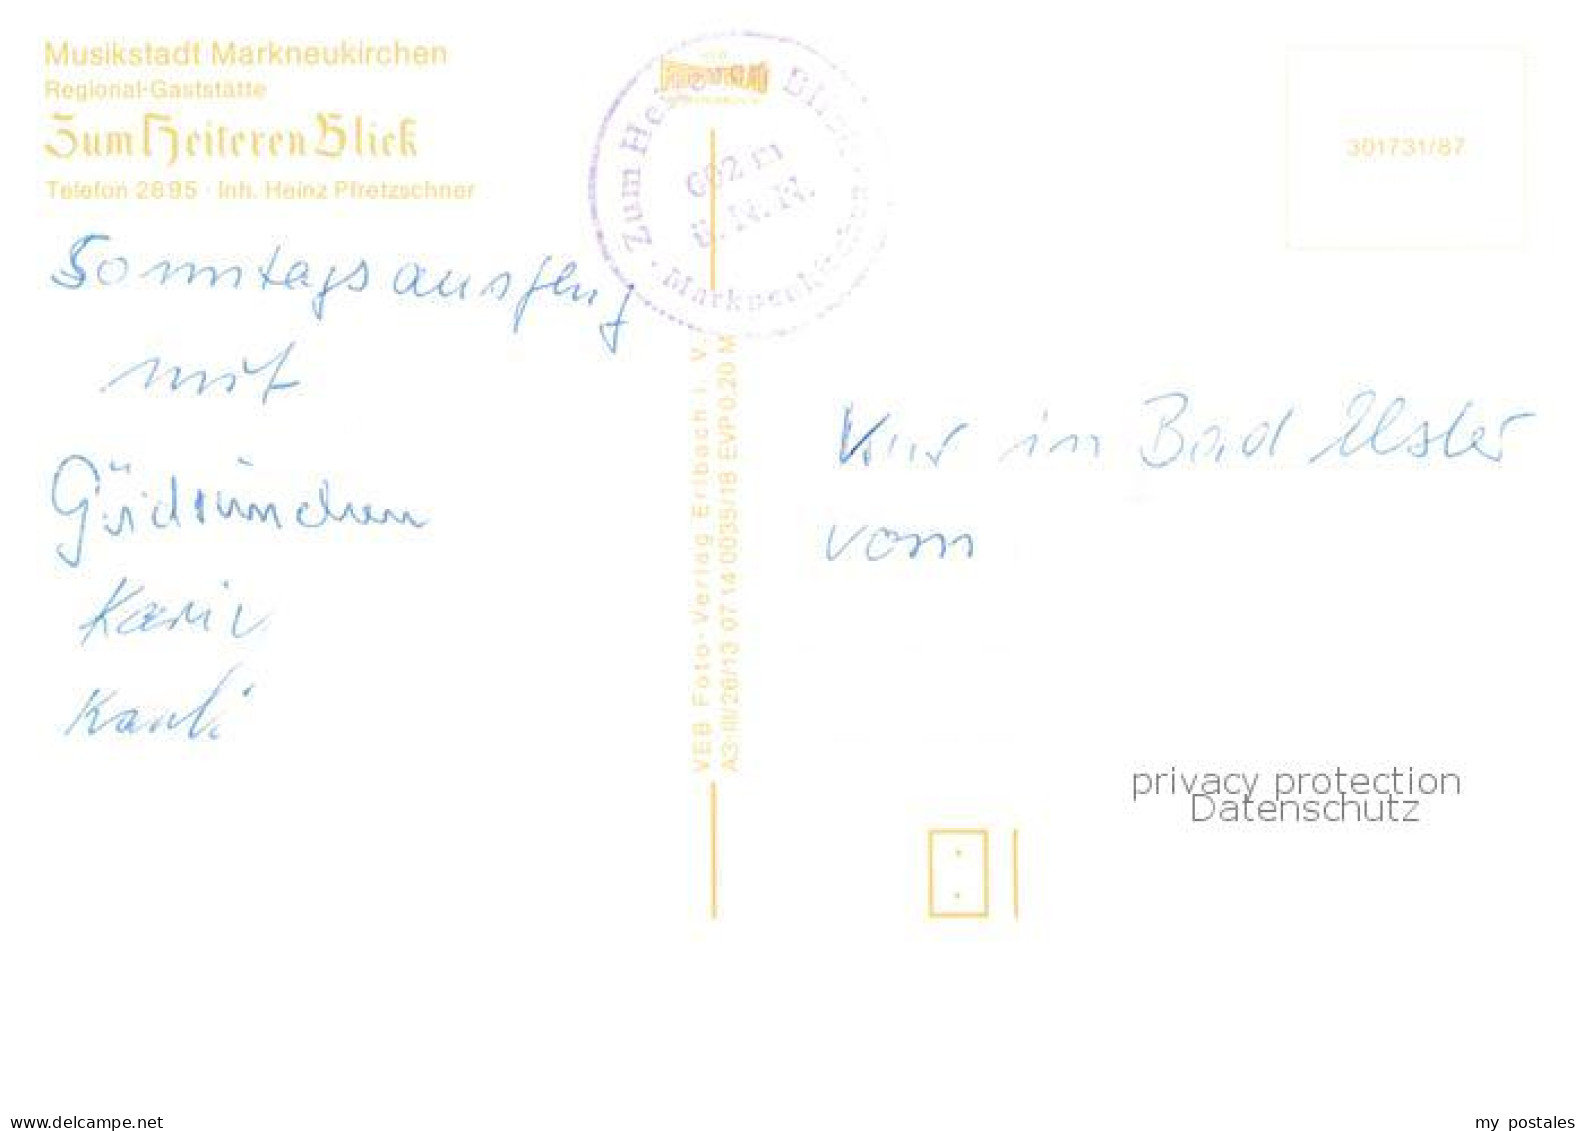 Musikstadt Markneukirchen
Regional-Gaststätte
Zum Heiteren Blick
Telefon 2895 · Inh. Heinz Pfretzschner
Zum Heiteren Blick · Markneukirchen ·
602 m
ü. N. N.
301731/87
Sonntagsausflug
mit
Karin
Kur in Bad Elster
vom
VEB Foto-Verlag Erlbach i. V.
A3-III/26/13 07 14 0035/18 EVP 0,20 M
privacy protection
Datenschutz
www.delcampe.net
my_postales